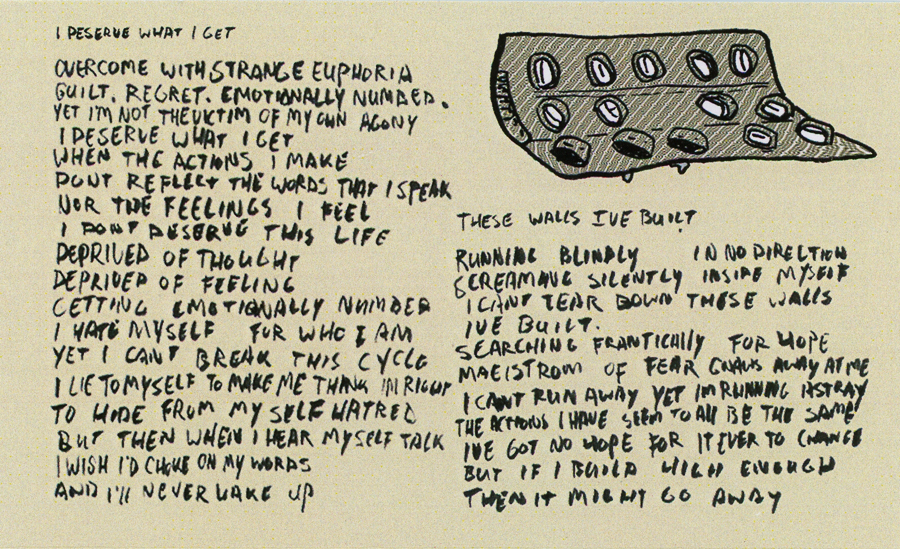 I DESERVE WHAT I GET
OVERCOME WITH STRANGE EUPHORIA
GUILT. REGRET. EMOTIONALLY NUMBED.
YET I'M NOT THE VICTIM OF MY OWN AGONY
I DESERVE WHAT I GET
WHEN THE ACTIONS I MAKE
DONT REFLECT THE WORDS THAT I SPEAK
NOR THE FEELINGS I FEEL
I DONT DESERVE THIS LIFE
DEPRIVED OF THOUGHT
DEPRIVED OF FEELING
GETTING EMOTIONALLY NUMBED
I HATE MYSELF FOR WHO I AM
YET I CAN'T BREAK THIS CYCLE
I LIE TO MYSELF TO MAKE ME THINK IM RIGHT
TO HIDE FROM MY SELF HATRED
BUT THEN WHEN I HEAR MYSELF TALK
I WISH I'D CHOKE ON MY WORDS
AND I'LL NEVER WAKE UP
THESE WALLS I'VE BUILT
RUNNING BLINDLY IN NO DIRECTION
SCREAMING SILENTLY INSIDE MYSELF
I CANT TEAR DOWN THESE WALLS
IVE BUILT.
SEARCHING FRANTICALLY FOR HOPE
MAELSTROM OF FEAR GNAWS AWAY AT ME
I CANT RUN AWAY YET IM RUNNING ASTRAY
THE ACTIONS I HAVE SEEM TO ALL BE THE SAME
IVE GOT NO HOPE FOR IT EVER TO CHANGE
BUT IF I BUILD HIGH ENOUGH
THEN IT MIGHT GO AWAY